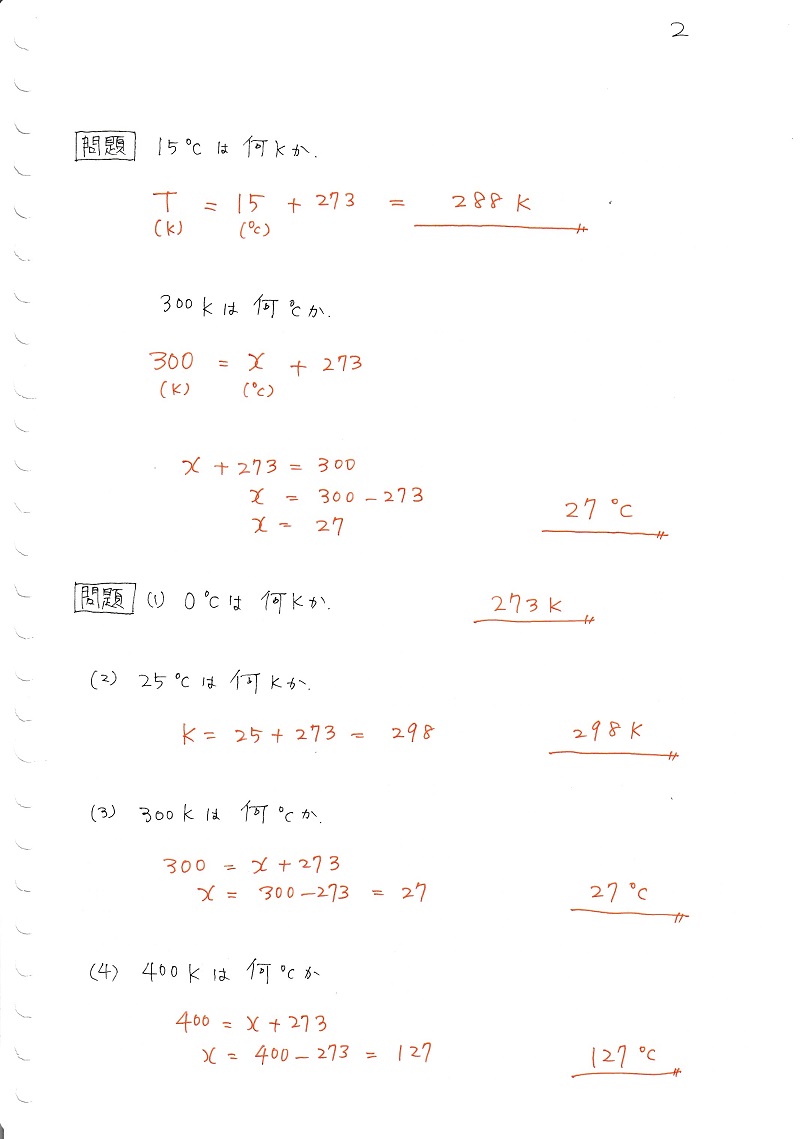 2
問題 15℃は何Kか.
T = 15 + 273 = 288 K
(K) (℃)
300Kは何℃か.
300 = x + 273
(K) (℃)
x + 273 = 300
x = 300 - 273
x = 27 27℃
問題 (1) 0℃は何Kか. 273K
(2) 25℃は何Kか.
K = 25 + 273 = 298 298K
(3) 300Kは何℃か.
300 = x + 273
x = 300 - 273 = 27 27℃
(4) 400Kは何℃か
400 = x + 273
x = 400 - 273 = 127 127℃